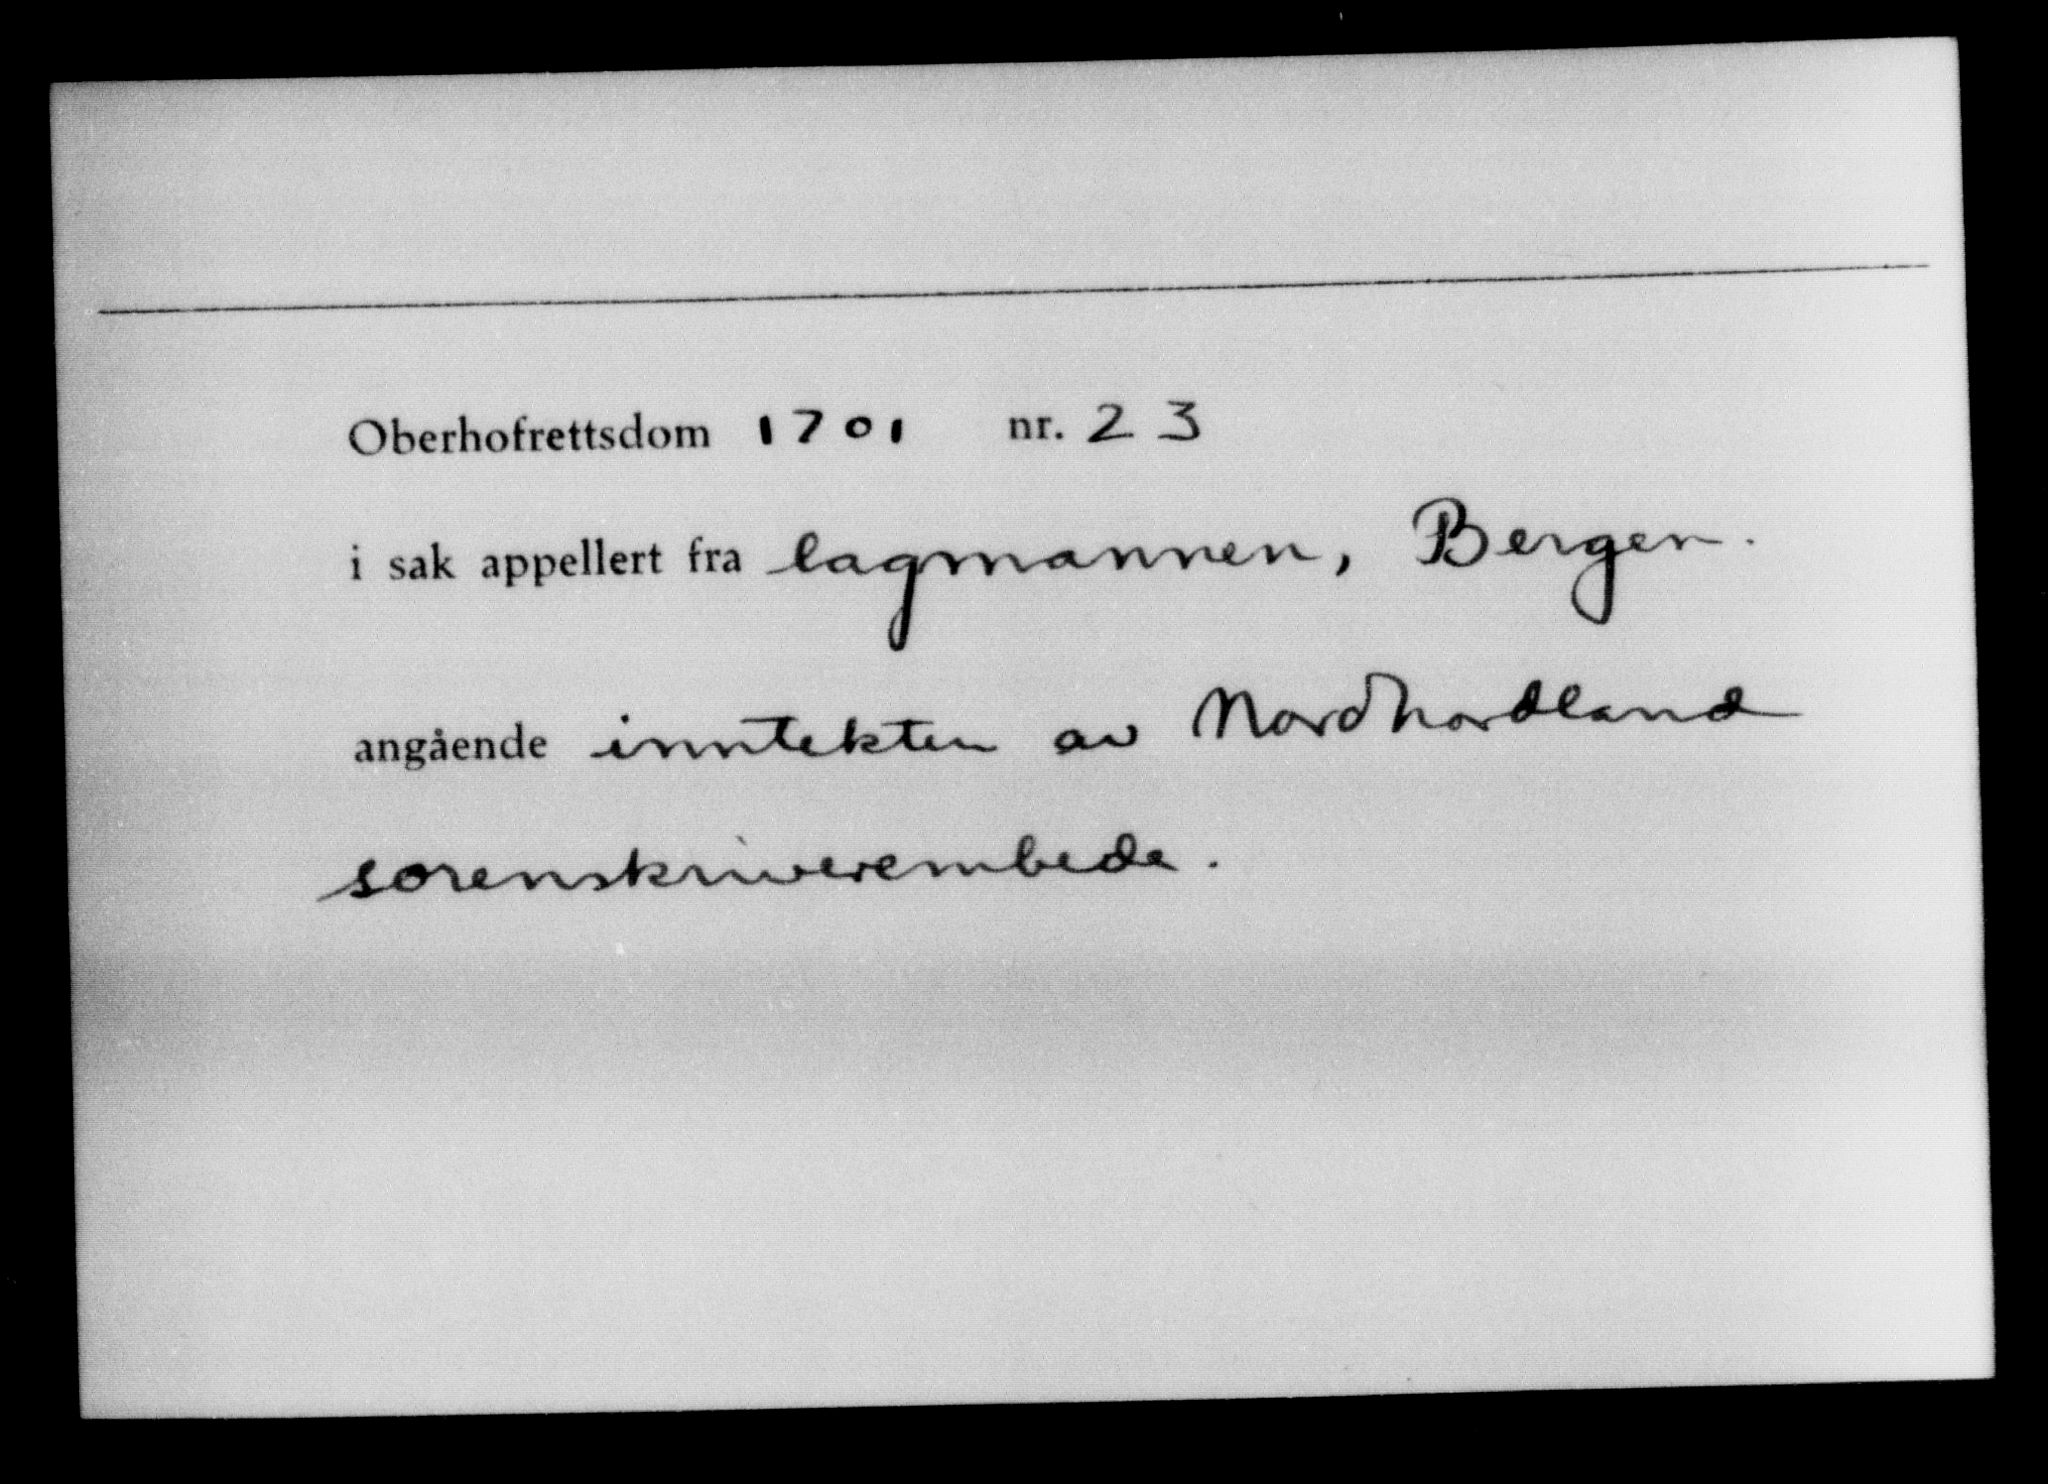 Oberhofrettsdom 1701 nr. 23
i sak appellert fra lagmannen, Bergen.
angående inntekten av Nordhordland
sorenskriverembede.